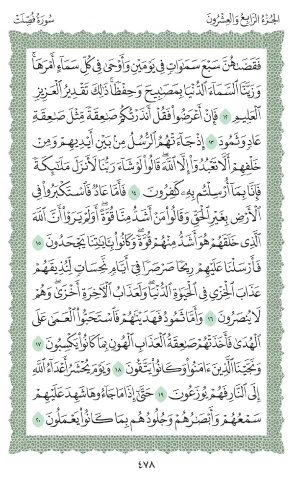 الجزء الرابع والعشرون سورة فصلت
فَقَضَىٰهُنَّ سَبْعَ سَمَٰوَاتٍ فِي يَوْمَيْنِ وَأَوْحَىٰ فِي كُلِّ سَمَآءٍ أَمْرَهَاۚ
وَزَيَّنَّا ٱلسَّمَآءَ ٱلدُّنْيَا بِمَصَٰبِيحَ وَحِفْظٗاۚ ذَٰلِكَ تَقْدِيرُ ٱلْعَزِيزِ
ٱلْعَلِيمِ ١٢ فَإِنْ أَعْرَضُوا۟ فَقُلْ أَنذَرْتُكُمْ صَٰعِقَةٗ مِّثْلَ صَٰعِقَةِ
عَادٖ وَثَمُودَ ١٣ إِذْ جَآءَتْهُمُ ٱلرُّسُلُ مِنۢ بَيْنِ أَيْدِيهِمْ وَمِنْ
خَلْفِهِمْ أَلَّا تَعْبُدُوٓا۟ إِلَّا ٱللَّهَۖ قَالُوا۟ لَوْ شَآءَ رَبُّنَا لَأَنزَلَ مَلَٰٓئِكَةٗ
فَإِنَّا بِمَآ أُرْسِلْتُم بِهِۦ كَٰفِرُونَ ١٤ فَأَمَّا عَادٞ فَٱسْتَكْبَرُوا۟ فِي
ٱلْأَرْضِ بِغَيْرِ ٱلْحَقِّ وَقَالُوا۟ مَنْ أَشَدُّ مِنَّا قُوَّةًۖ أَوَلَمْ يَرَوْا۟ أَنَّ ٱللَّهَ
ٱلَّذِي خَلَقَهُمْ هُوَ أَشَدُّ مِنْهُمْ قُوَّةٗۖ وَكَانُوا۟ بِـَٔايَٰتِنَا يَجْحَدُونَ ١٥
فَأَرْسَلْنَا عَلَيْهِمْ رِيحٗا صَرْصَرٗا فِيٓ أَيَّامٖ نَّحِسَاتٖ لِّنُذِيقَهُمْ
عَذَابَ ٱلْخِزْيِ فِي ٱلْحَيَوٰةِ ٱلدُّنْيَاۖ وَلَعَذَابُ ٱلْأٓخِرَةِ أَخْزَىٰۖ وَهُمْ
لَا يُنصَرُونَ ١٦ وَأَمَّا ثَمُودُ فَهَدَيْنَٰهُمْ فَٱسْتَحَبُّوا۟ ٱلْعَمَىٰ عَلَى
ٱلْهُدَىٰ فَأَخَذَتْهُمْ صَٰعِقَةُ ٱلْعَذَابِ ٱلْهُونِ بِمَا كَانُوا۟ يَكْسِبُونَ ١٧
وَنَجَّيْنَا ٱلَّذِينَ ءَامَنُوا۟ وَكَانُوا۟ يَتَّقُونَ ١٨ وَيَوْمَ يُحْشَرُ أَعْدَآءُ ٱللَّهِ
إِلَى ٱلنَّارِ فَهُمْ يُوزَعُونَ ١٩ حَتَّىٰٓ إِذَا مَا جَآءُوهَا شَهِدَ عَلَيْهِمْ
سَمْعُهُمْ وَأَبْصَٰرُهُمْ وَجُلُودُهُم بِمَا كَانُوا۟ يَعْمَلُونَ ٢٠
٤٧٨